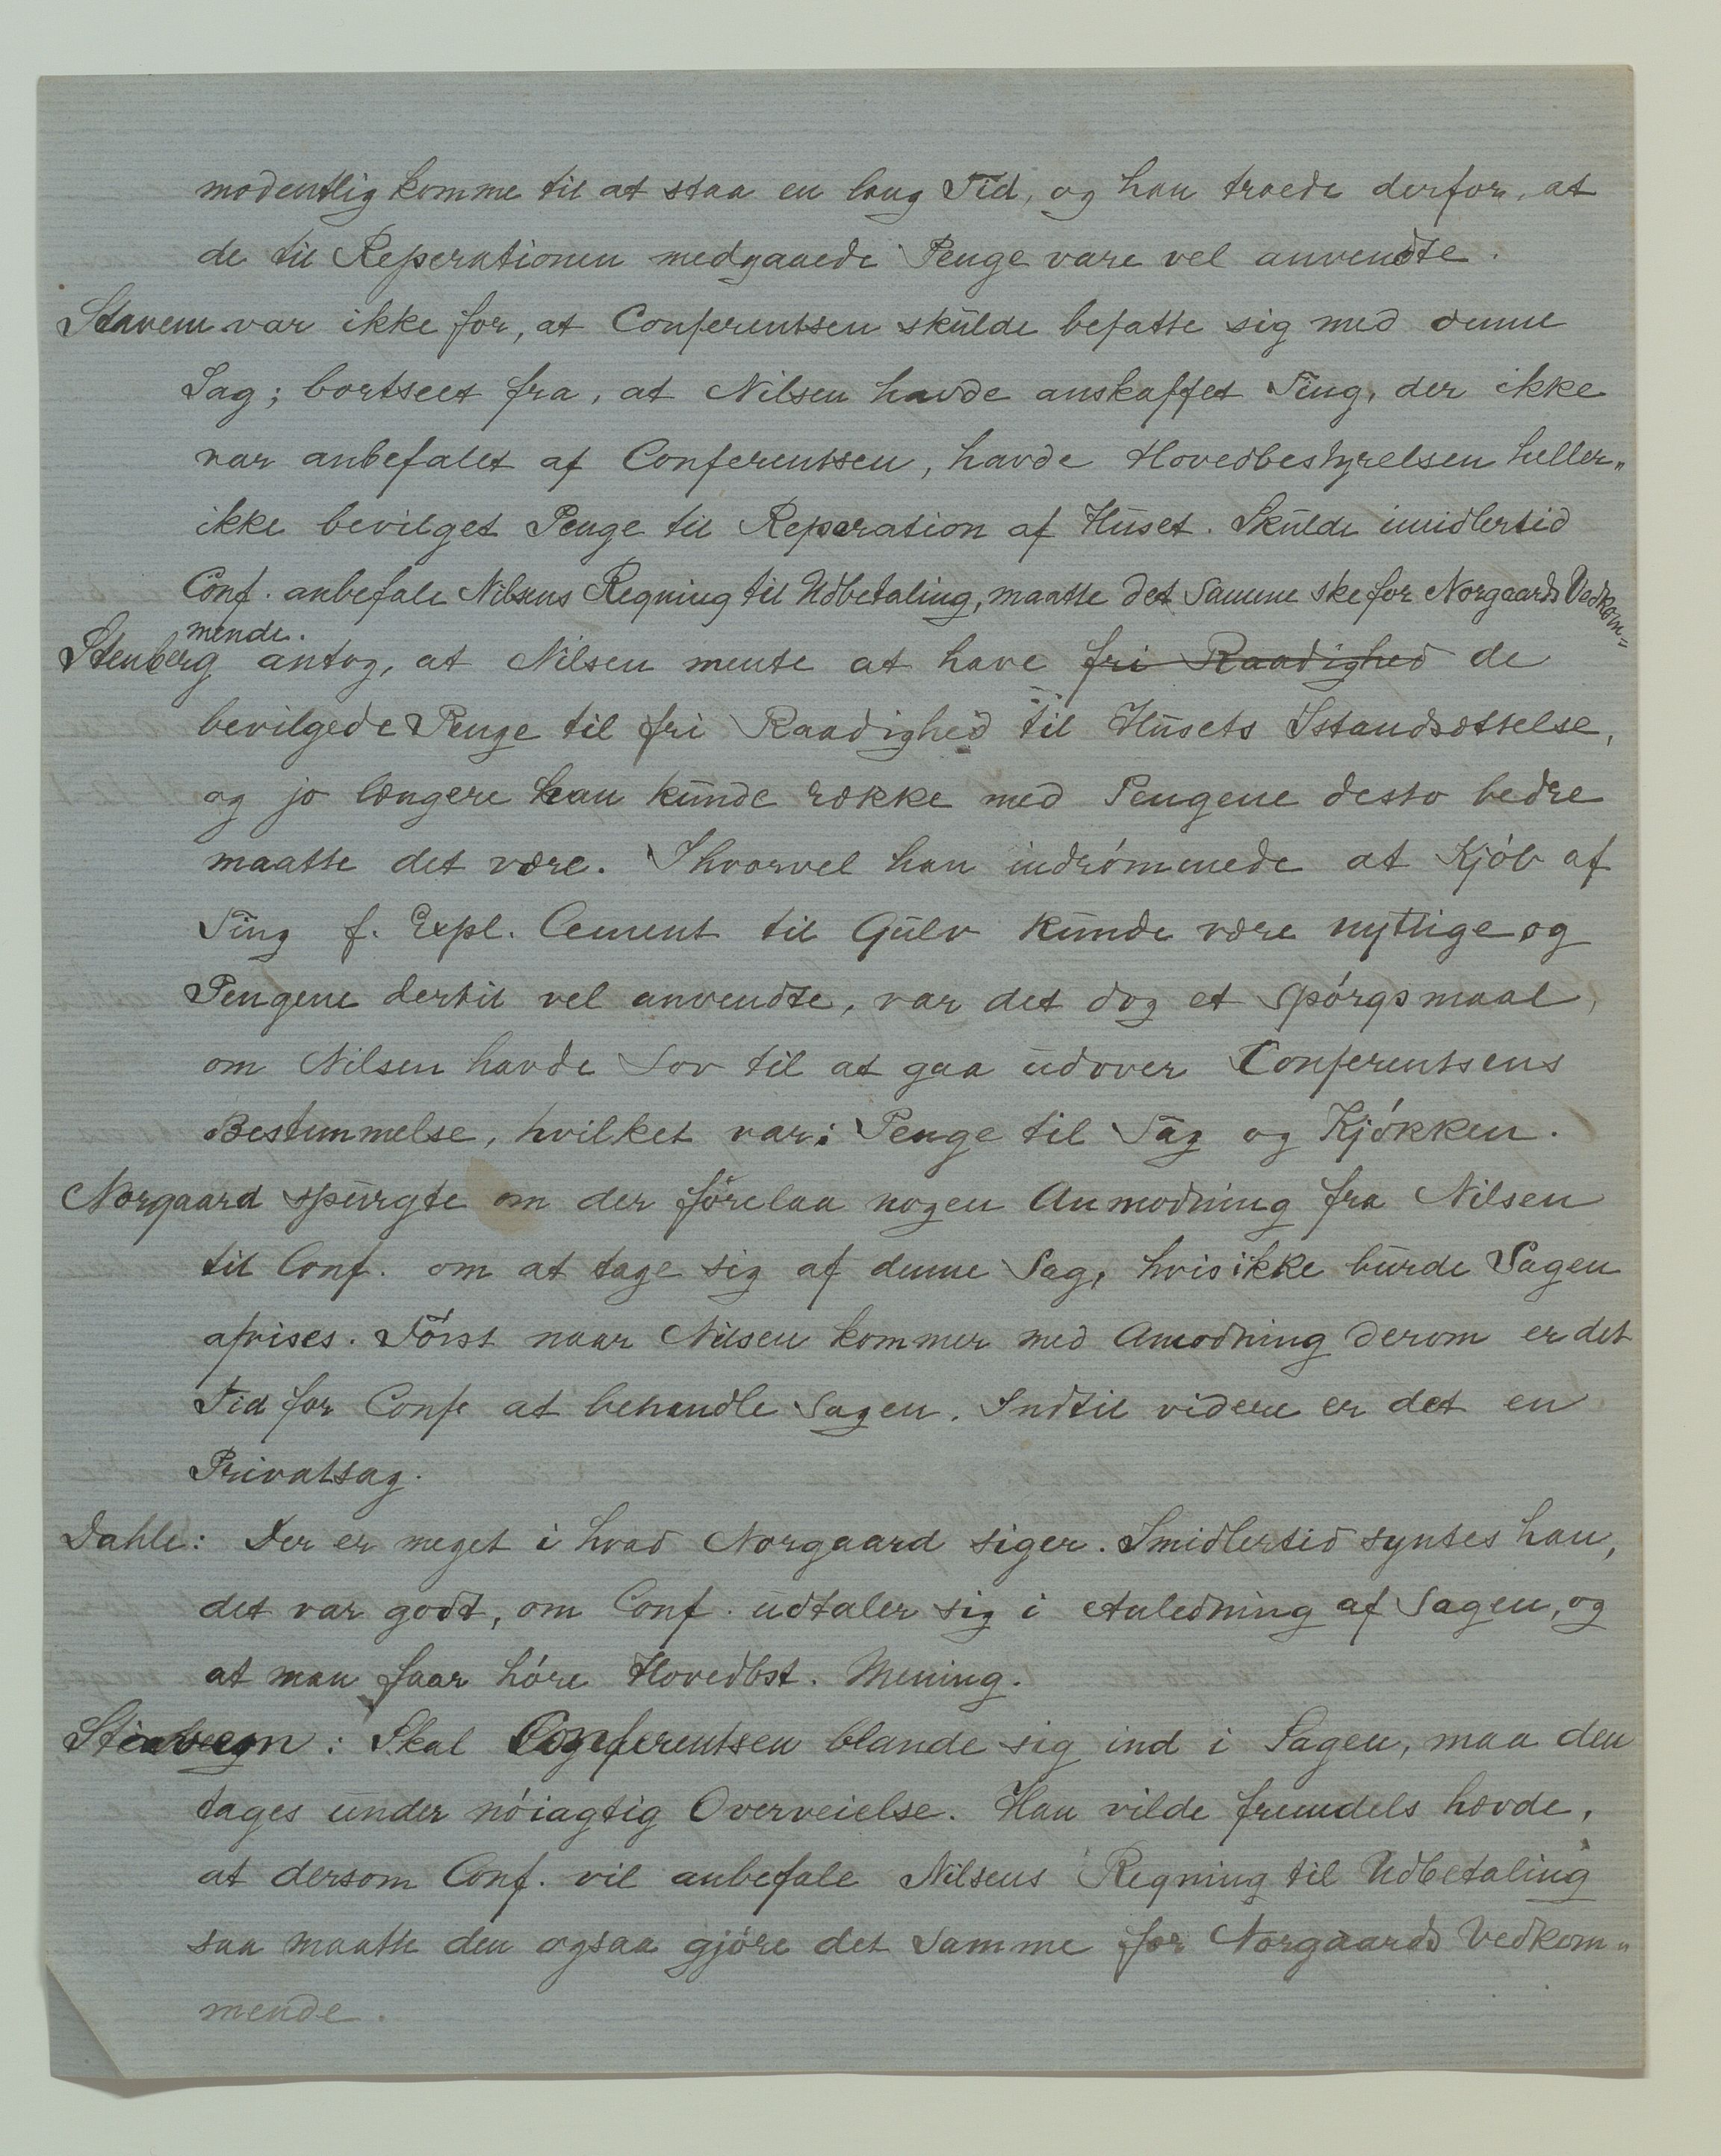 modentlig komme til at staa en lang Tid, og han troede derfor, at
de til Reperationen medgaaede Penge vare vel anvendte.
Stavem var ikke for, at Conferentsen skulde befatte sig med denne
Sag; bortseet fra, at Nilsen havde anskaffet Ting, der ikke
var anbefalet af Conferentsen, havde Hovedbestyrelsen heller„
ikke bevilget Penge til Reparation af Huset. Skulde imidlertid
Conf. anbefale Nilsens Regning til Udbetaling, maatte det Samme ske for Norgaards Vedkom„
mende.
Stenberg antog, at Nilsen mente at have fri Raadighed de
bevilgede Penge til fri Raadighed til Husets Istandsættelse,
og jo længere han kunde række med Pengene desto bedre
maatte det være. Ihvorvel han indrómmede at Kjób af
Ting f. Expl. Cement til Gulv kunde være nyttige og
Pengene dertil vel anvendte, var det dog et Spórgsmaal,
om Nilsen havde Lov til at gaa udover Conferentsens
Bestemmelse, hvilket var: Penge til Tag og Kjókken.
Norgaard spurgte om der forelaa nogen Anmodning fra Nilsen
til Conf. om at tage sig af denne Sag, hvis ikke burde Sagen
afvises. Fórst naar Nilsen kommer med Amodning derom er det
Tid for Conf at behandle Sagen. Indtil videre er det en
Privatsag.
Dahle: Der er meget i hvad Norgaard siger. Imidlertid syntes han,
det var godt, om Conf. udtaler sig i Anledning af Sagen, og
at man faar hóre Hovedbst. Mening.
: Skal Conferentsen blande sig ind i Sagen, maa den
tages under nóiagtig Overveielse. Han vilde fremdels hævde,
at dersom Conf. vil anbefale Nilsens Regning til Udbetaling
saa maatte den ogsaa gjóre det Samme for Norgaards Vedkom„
mende.